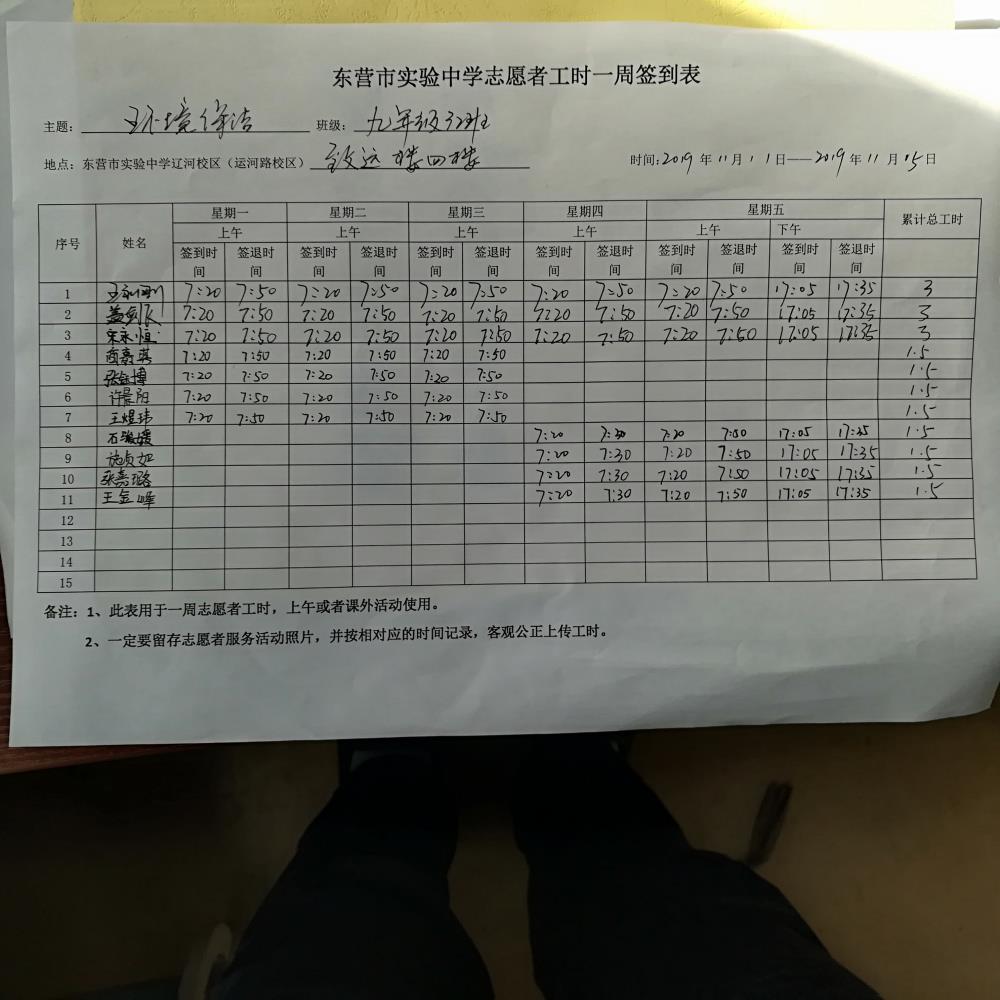 东营市实验中学志愿者工时一周签到表
主题：环境保洁 班级：九年级32班
地点：东营市实验中学辽河校区（运河路校区）致远楼四楼 时间：2019年11月11日——2019年11月15日
序号 姓名 星期一 星期二 星期三 星期四 星期五 累计总工时
上午 上午 上午 上午 上午 下午
签到时间 签退时间 签到时间 签退时间 签到时间 签退时间 签到时间 签退时间 签到时间 签退时间 签到时间 签退时间
1 7:20 7:50 7:20 7:50 7:20 7:50 7:20 7:50 7:20 7:50 17:05 17:35 3
2 7:20 7:50 7:20 7:50 7:20 7:50 7:20 7:50 7:20 7:50 17:05 17:35 3
3 宋永恒 7:20 7:50 7:20 7:50 7:20 7:50 7:20 7:50 7:20 7:50 17:05 17:35 3
4 7:20 7:50 7:20 7:50 7:20 7:50 1.5
5 7:20 7:50 7:20 7:50 7:20 7:50 1.5
6 许晨阳 7:20 7:50 7:20 7:50 7:20 7:50 1.5
7 王煜玮 7:20 7:50 7:20 7:50 7:20 7:50 1.5
8 7:20 7:20 7:50 17:05 1.5
9 7:20 7:30 7:20 7:50 17:05 17:35 1.5
10 张嘉璐 7:20 7:30 7:20 7:50 17:05 17:35 1.5
11 王金峰 7:20 7:30 7:20 7:50 17:05 17:35 1.5
12
13
14
15
备注：1、此表用于一周志愿者工时，上午或者课外活动使用。
2、一定要留存志愿者服务活动照片，并按相对应的时间记录，客观公正上传工时。